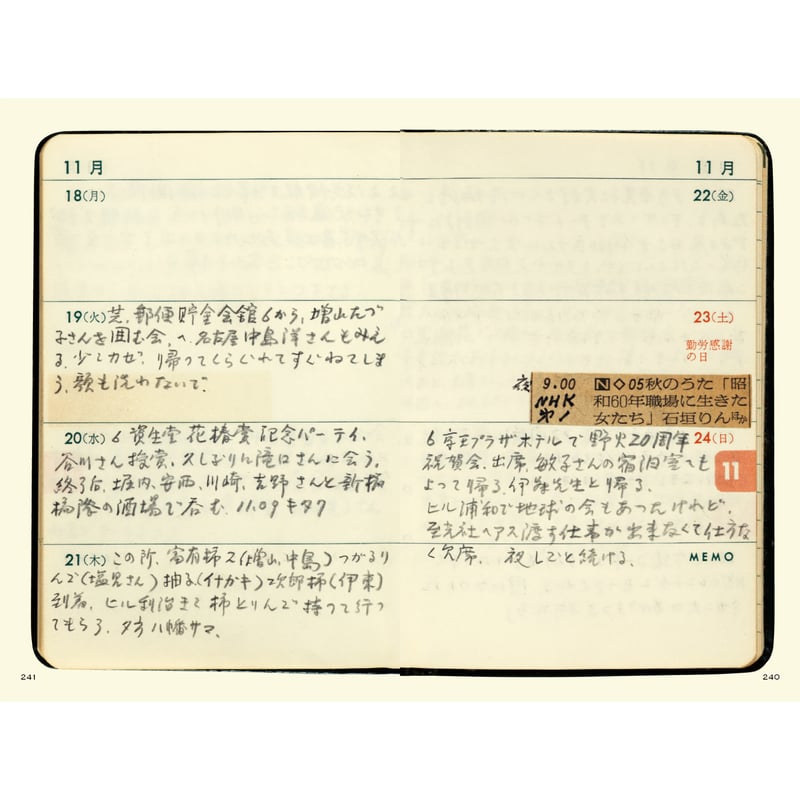 11月
18(月)
19(火) 芝,郵便貯金会館6から,増山たづ
子さんを囲む会,へ.名古屋中島洋さんもみえ
る.少しカゼ.帰ってくらぐれてすぐねてしま
う,顔も洗わないで.
20(水) 6 資生堂花椿賞記念パーティ.
谷川さん授賞.久しぶりに滝口さんに会う.
終了后.堀内,安西,川崎,吉野さんと新橋
橋際の酒場で呑む.11.09キタク
21(木) この所,富有柿2(増山,中島)つがるり
んご(塩見さん)柚子(イナガキ)次郎柿(伊東)
到着.ヒル利治きて柿とりんご持って行っ
てもらう.夕方八幡サマ.
241
11月
22(金)
23(土)
勤労感謝
の日
夜
9.00
NHK
オ1
N◇05秋のうた「昭
和60年職場に生きた
女たち」石垣りんほか
24(日)
6 京王プラザホテルで野火20周年
祝賀会.出席.敏子さんの宿泊室へも
よって帰る.伊藤先生と帰る.
ヒル浦和で地球の会もあったけれど.
至光社へアス渡す仕事が出来なくて仕方な
く欠席. 夜しごと続ける.
11
MEMO
240